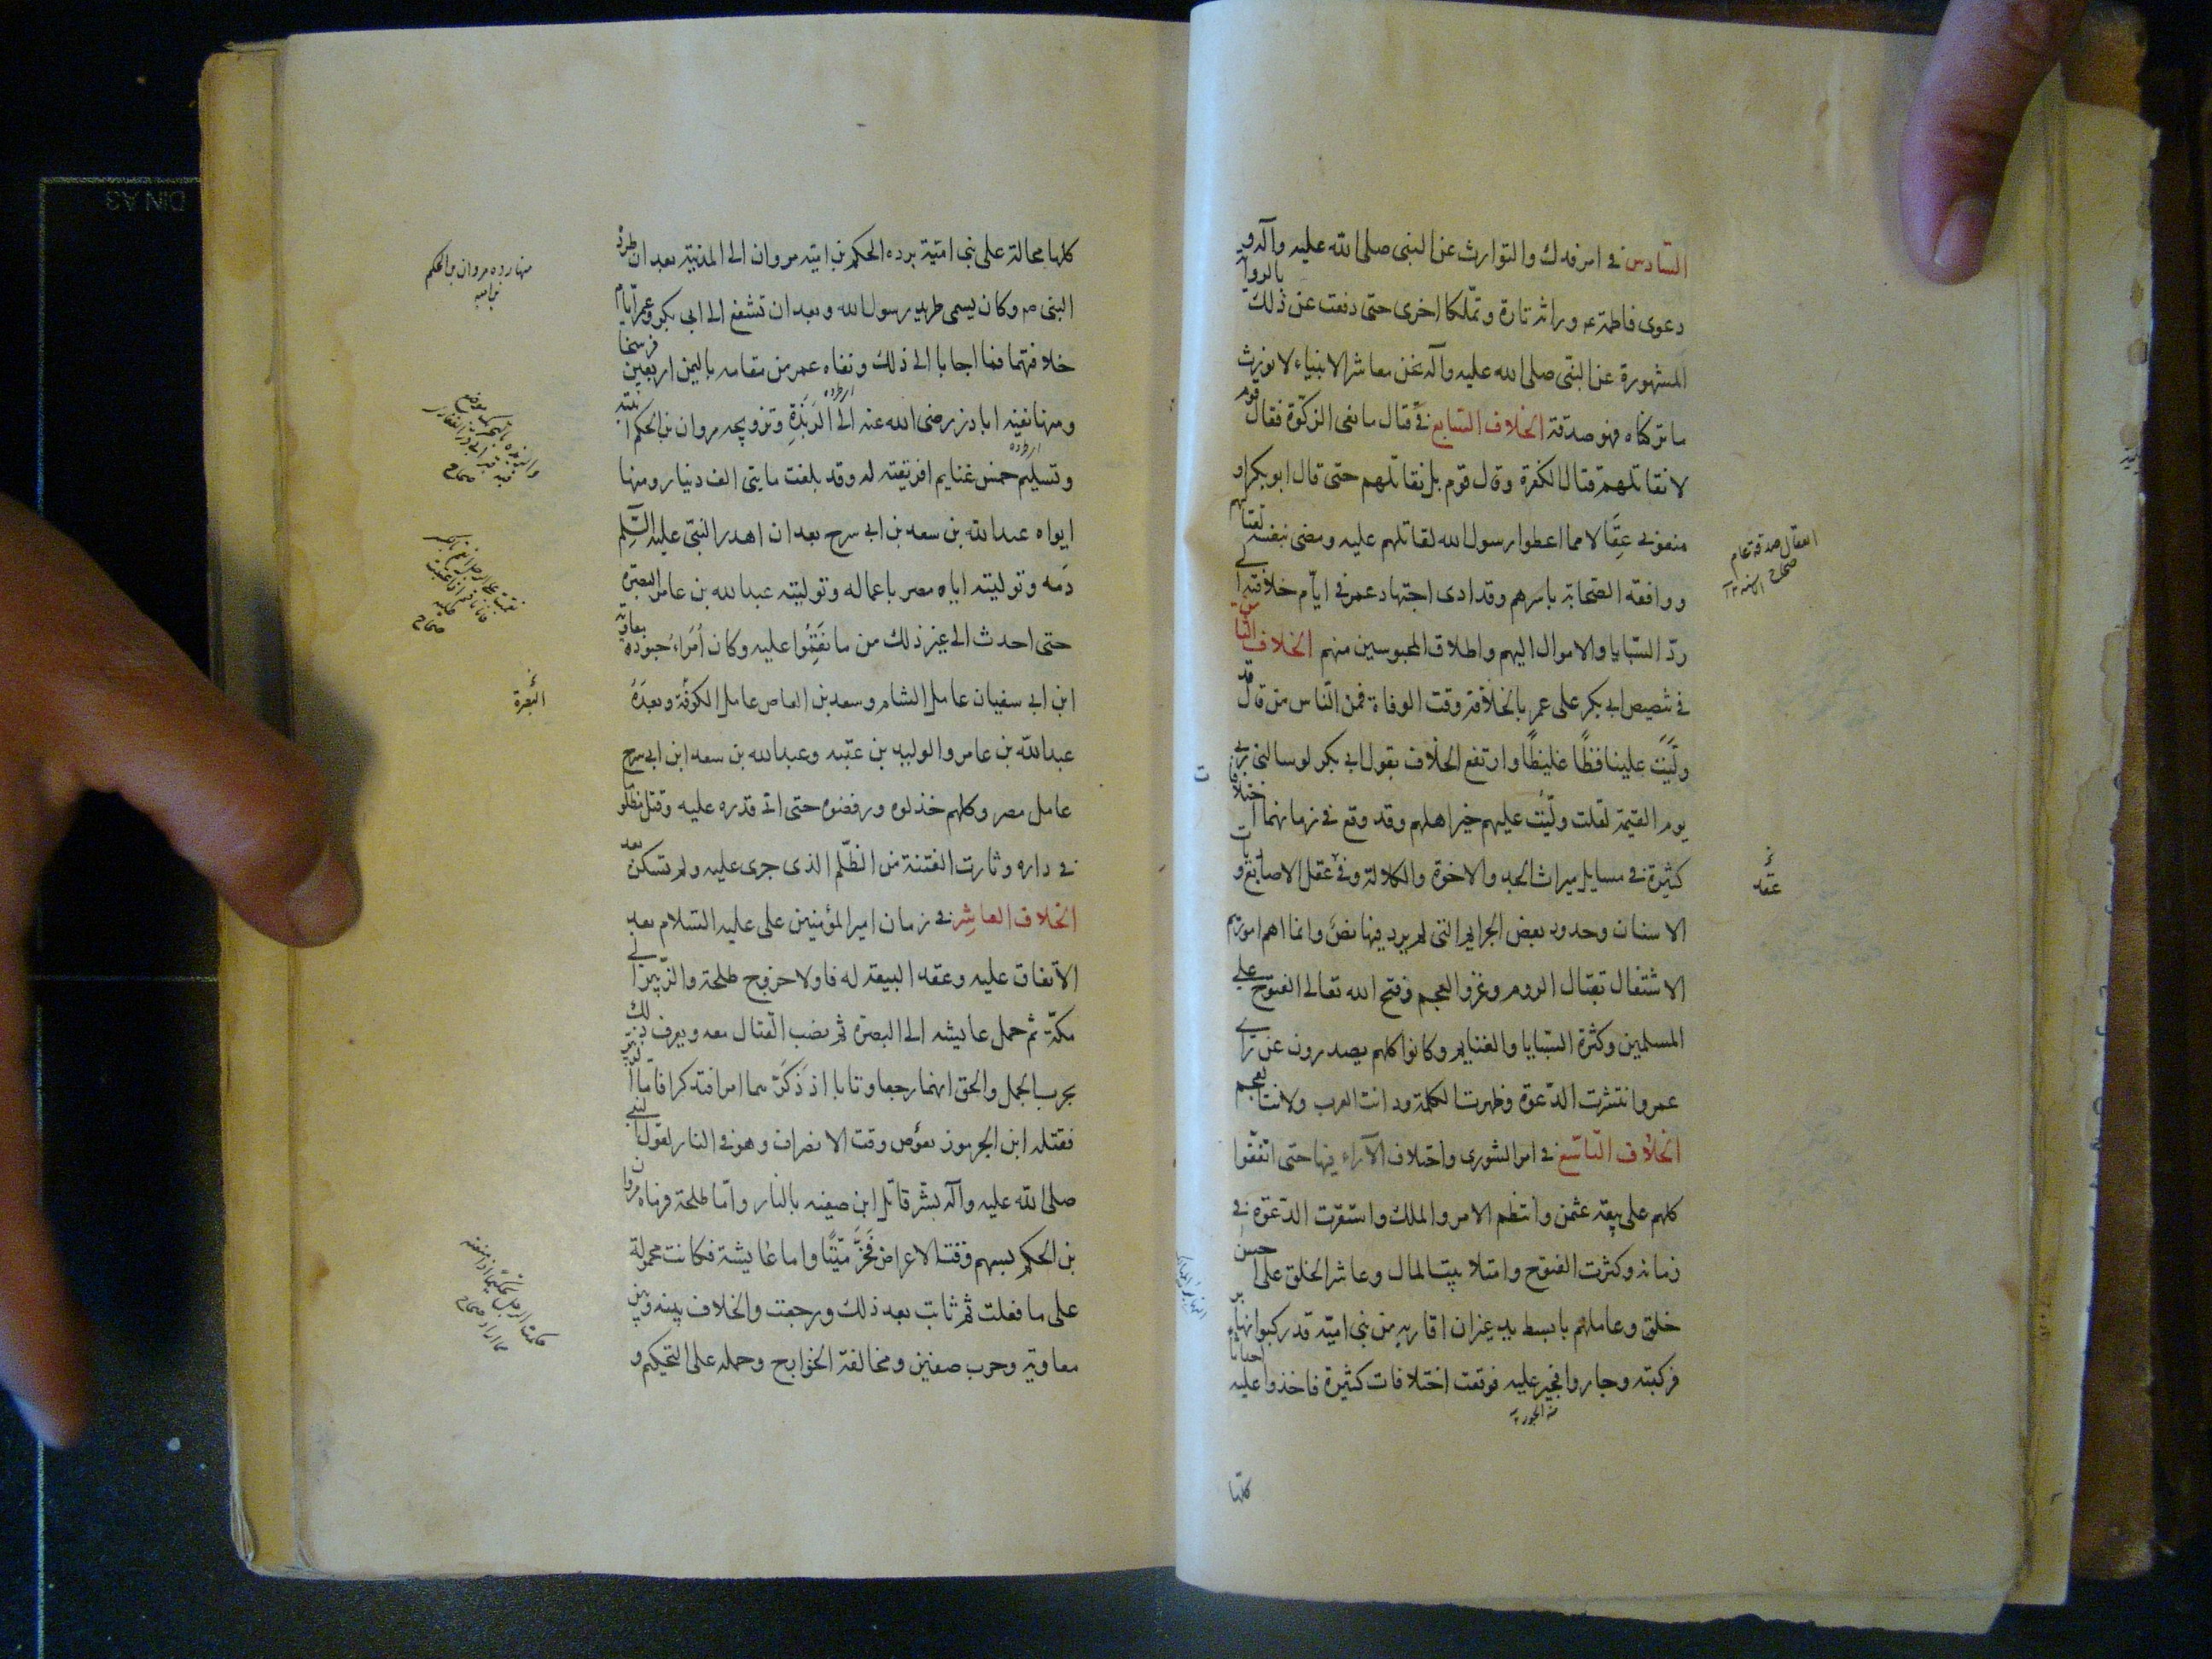 السادس في امر فدك والتوارث عن النبي صلى الله عليه وآله و
دعوى فاطمة ع وراثة تارة وتملكا اخرى حتى دفعت عن ذلك بالرواية
المشهورة عن النبي صلى الله عليه وآله نحن معاشر الانبياء لا نورث
ما تركناه فهو صدقة الخلاف السابع في قتال مانعي الزكوة فقال قوم
لا نقاتلهم قتال الكفرة وقال قوم بل نقاتلهم حتى قال ابو بكر لو
منعوني عِقَالا مما اعطوا رسول الله لقاتلهم عليه ومضى بنفسه لقتالهم
ووافقه الصحابة باسرهم وقد ادى اجتهاد عمر في ايّام خلافته الى
ردّ السبايا والاموال اليهم واطلاق المحبوسين منهم الخلاف الثامن
في تنصيص ابي بكر على عمر بالخلافة وقت الوفاة فمن الناس من قال قد
ولّيت علينا فظًا غليظًا وارتفع الخلاف بقول ابي بكر لو سالني ربي
يوم القيمة لقلت ولّيت عليهم خير اهلهم وقد وقع في زمانهما اختلافات
كثيرة في مسايل ميراث الجد والاخوة والكلالة وفي عقل الاصابع و
الاسنان وحدود بعض الجرايم التي لم يرد فيها نصّ وانما اهم امورهم
الاشتغال بقتال الروم وغزو العجم وفتح الله تعالى الفتوح على
المسلمين وكثرة السبايا والغنايم وكانوا كلهم يصدرون عن راي
عمر وانتشرت الدّعوة وظهرت الكلمة ودانت العرب ولانت العجم
الخلاف التاسع في امر الشورى واختلاف الآراء فيها حتى اتفقوا
كلهم على بيعة عثمن وانتظم الامر والملك واستقرت الدّعوة في
زمانه وكثرت الفتوح وامتلا بيت المال وعاشر الخلق على احسن
خلق وعاملهم بابسط يد غير ان اقاربه من بني امية قد ركبوا نهابر
فركبته وجاروا فجير عليه فوقعت اختلافات كثيرة فاخذوا عليه احداثا
من الجور
كلها
العقال صدقة عام
صحاح
عقد
كلها محالة على بني امية برده الحكم بن امية مروان الى المدينة بعد ان طرد
النبي ص وكان يسمى طريد رسول الله وبعد ان تشفع الى ابي بكر وعمر ايام
خلافتهما فما اجابا الى ذلك ونفاه عمر من مقامه باليمن اربعين فرسخا
ومنها نفيه ابا ذر رضى الله عنه الى الرَبَذَةِ وتزويجه مروان بن الحكم ابنته
وتسليم خمس غنايم افريقية له وقد بلغت مايتي الف دينار ومنها
ايواه عبد الله بن سعد بن ابي سرح بعد ان اهدر النبي عليه السّلم
دَمه وتوليته اياه مصر باعماله وتوليته عبد الله بن عامر البصرة
حتى احدث الى غير ذلك من ما نَقَمُوا عليه وكان اُمَراء جنوده معاوية
ابن ابي سفيان عامل الشام وسعد بن العاص عامل الكوفة وبعده
عبد الله بن عامر والوليد بن عتبه وعبد الله بن سعد ابن ابي سرح
عامل مصر وكلهم خذلوه ورفضوه حتى اتى قدره عليه وقتل مظلو
في داره وثارت الفتنة من الظّلم الذى جرى عليه ولم تسكن بعد
الخلاف العاشر في زمان امير المؤمنين على عليه السلام بعد
الاتفاق عليه وعقد البيعة له فاولا خروج طلحة والزّبير الى
مكة ثم حمل عايشه الى البصرة ثم نصب القتال معه ويعرف ذلك
بحرب الجمل والحق انهما رجعا وتابا اذ ذَكّرهما امرا فتذكرا فاما الزبير
فقتله ابن الجرموز بقوس وقت الانصراف وهو في النار لقول النبي
صلى الله عليه وآله بشّر قاتل ابن صفيه بالنار وامّا طلحة فرماه مروان
بن الحكم بسهم وقت الاعراض فَخَرَّ ميّتًا واما عايشة فكانت محمولة
على ما فعلت ثم ثابت بعد ذلك ورجعت والخلاف بينه وبين
معاوية وحرب صفين ومخالفة الخوارج وحمله على التحكيم و
منها رده مروان بن الحكم
بن امية
صحاح
صحاح
البصرة